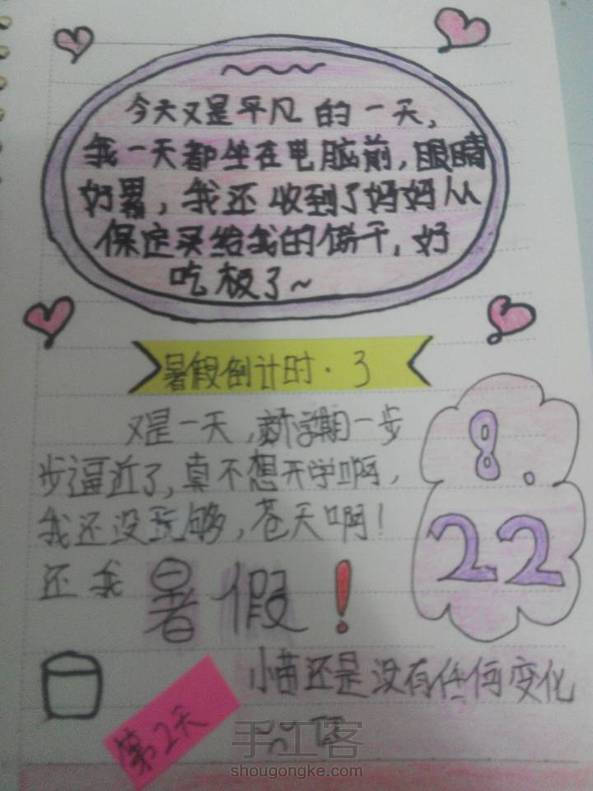 今天又是平凡的一天，
我一天都坐在电脑前，眼睛
好累，我还收到了妈妈从
保定买给我的饼干，好
吃极了~
暑假倒计时·3
又是一天，新学期一步
步逼近了，真不想开学啊，
我还没玩够，苍天啊！
还我暑假！
8.
22
小苗还是没有任何变化
第2天
手工客
shougongke.com